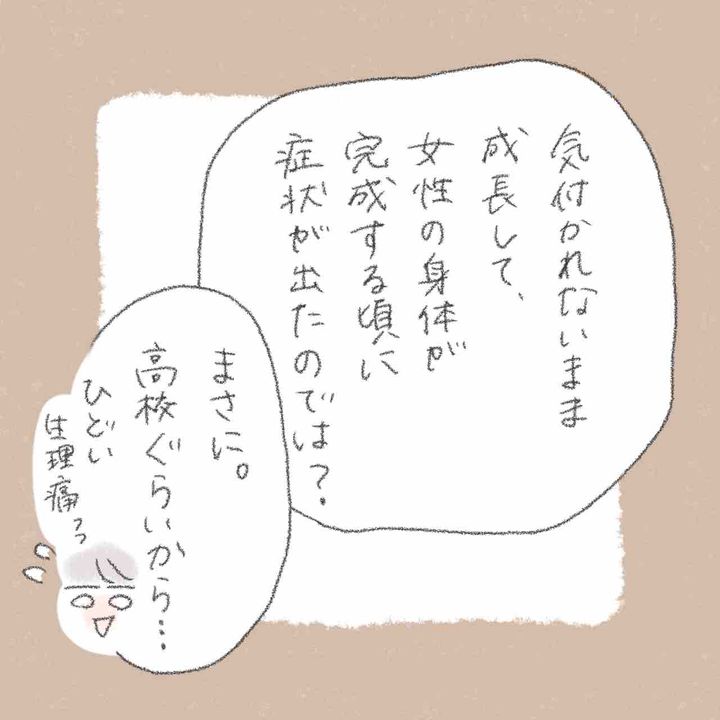 気付かれないまま
成長して、
女性の身体が
完成する頃に
症状が出たのでは？
まさに。
高校ぐらいから…
ひどい
生理痛っっ